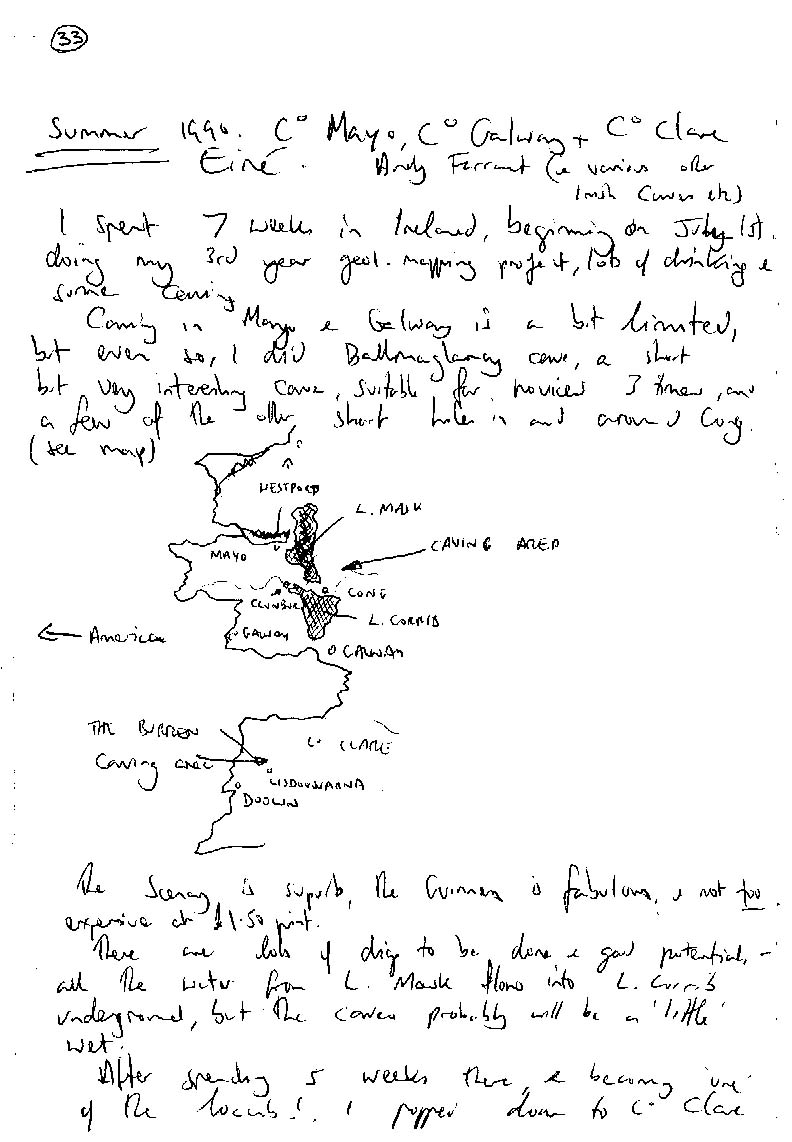 33
Summer 1990. Co Mayo, Co Galway + Co Clare
Eiré. Andy Farrant (& various other
Irish Cavers etc)
I spent 7 weeks in Ireland, beginning on July 1st.
doing my 3rd year geol. mapping project, lots of drinking &
some caving
Caving in Mayo & Galway is a bit limited,
but even so, I did Ballymaglancy cave, a short
but very interesting cave, suitable for novices 3 times, and
a few of the other short holes in and around Cong.
(see map)
WESTPORT
L. MASK
CAVING AREA
MAYO
CONG
CLONBUR
L. CORRIB
← America
GALWAY
GALWAY
THE BURREN
Co CLARE
Caving area
LISDOONVARNA
DOOLIN
The Scenery is superb, the Guinness is fabulous, & not too
expensive at £1.50 pint.
There are lots of digs to be done & good potential, -
all the water from L. Mask flows into L. Corrib
underground, but the caves probably will be a 'little'
wet.
After spending 5 weeks there, & becoming 'one'
of the locals!. I popped down to Co Clare